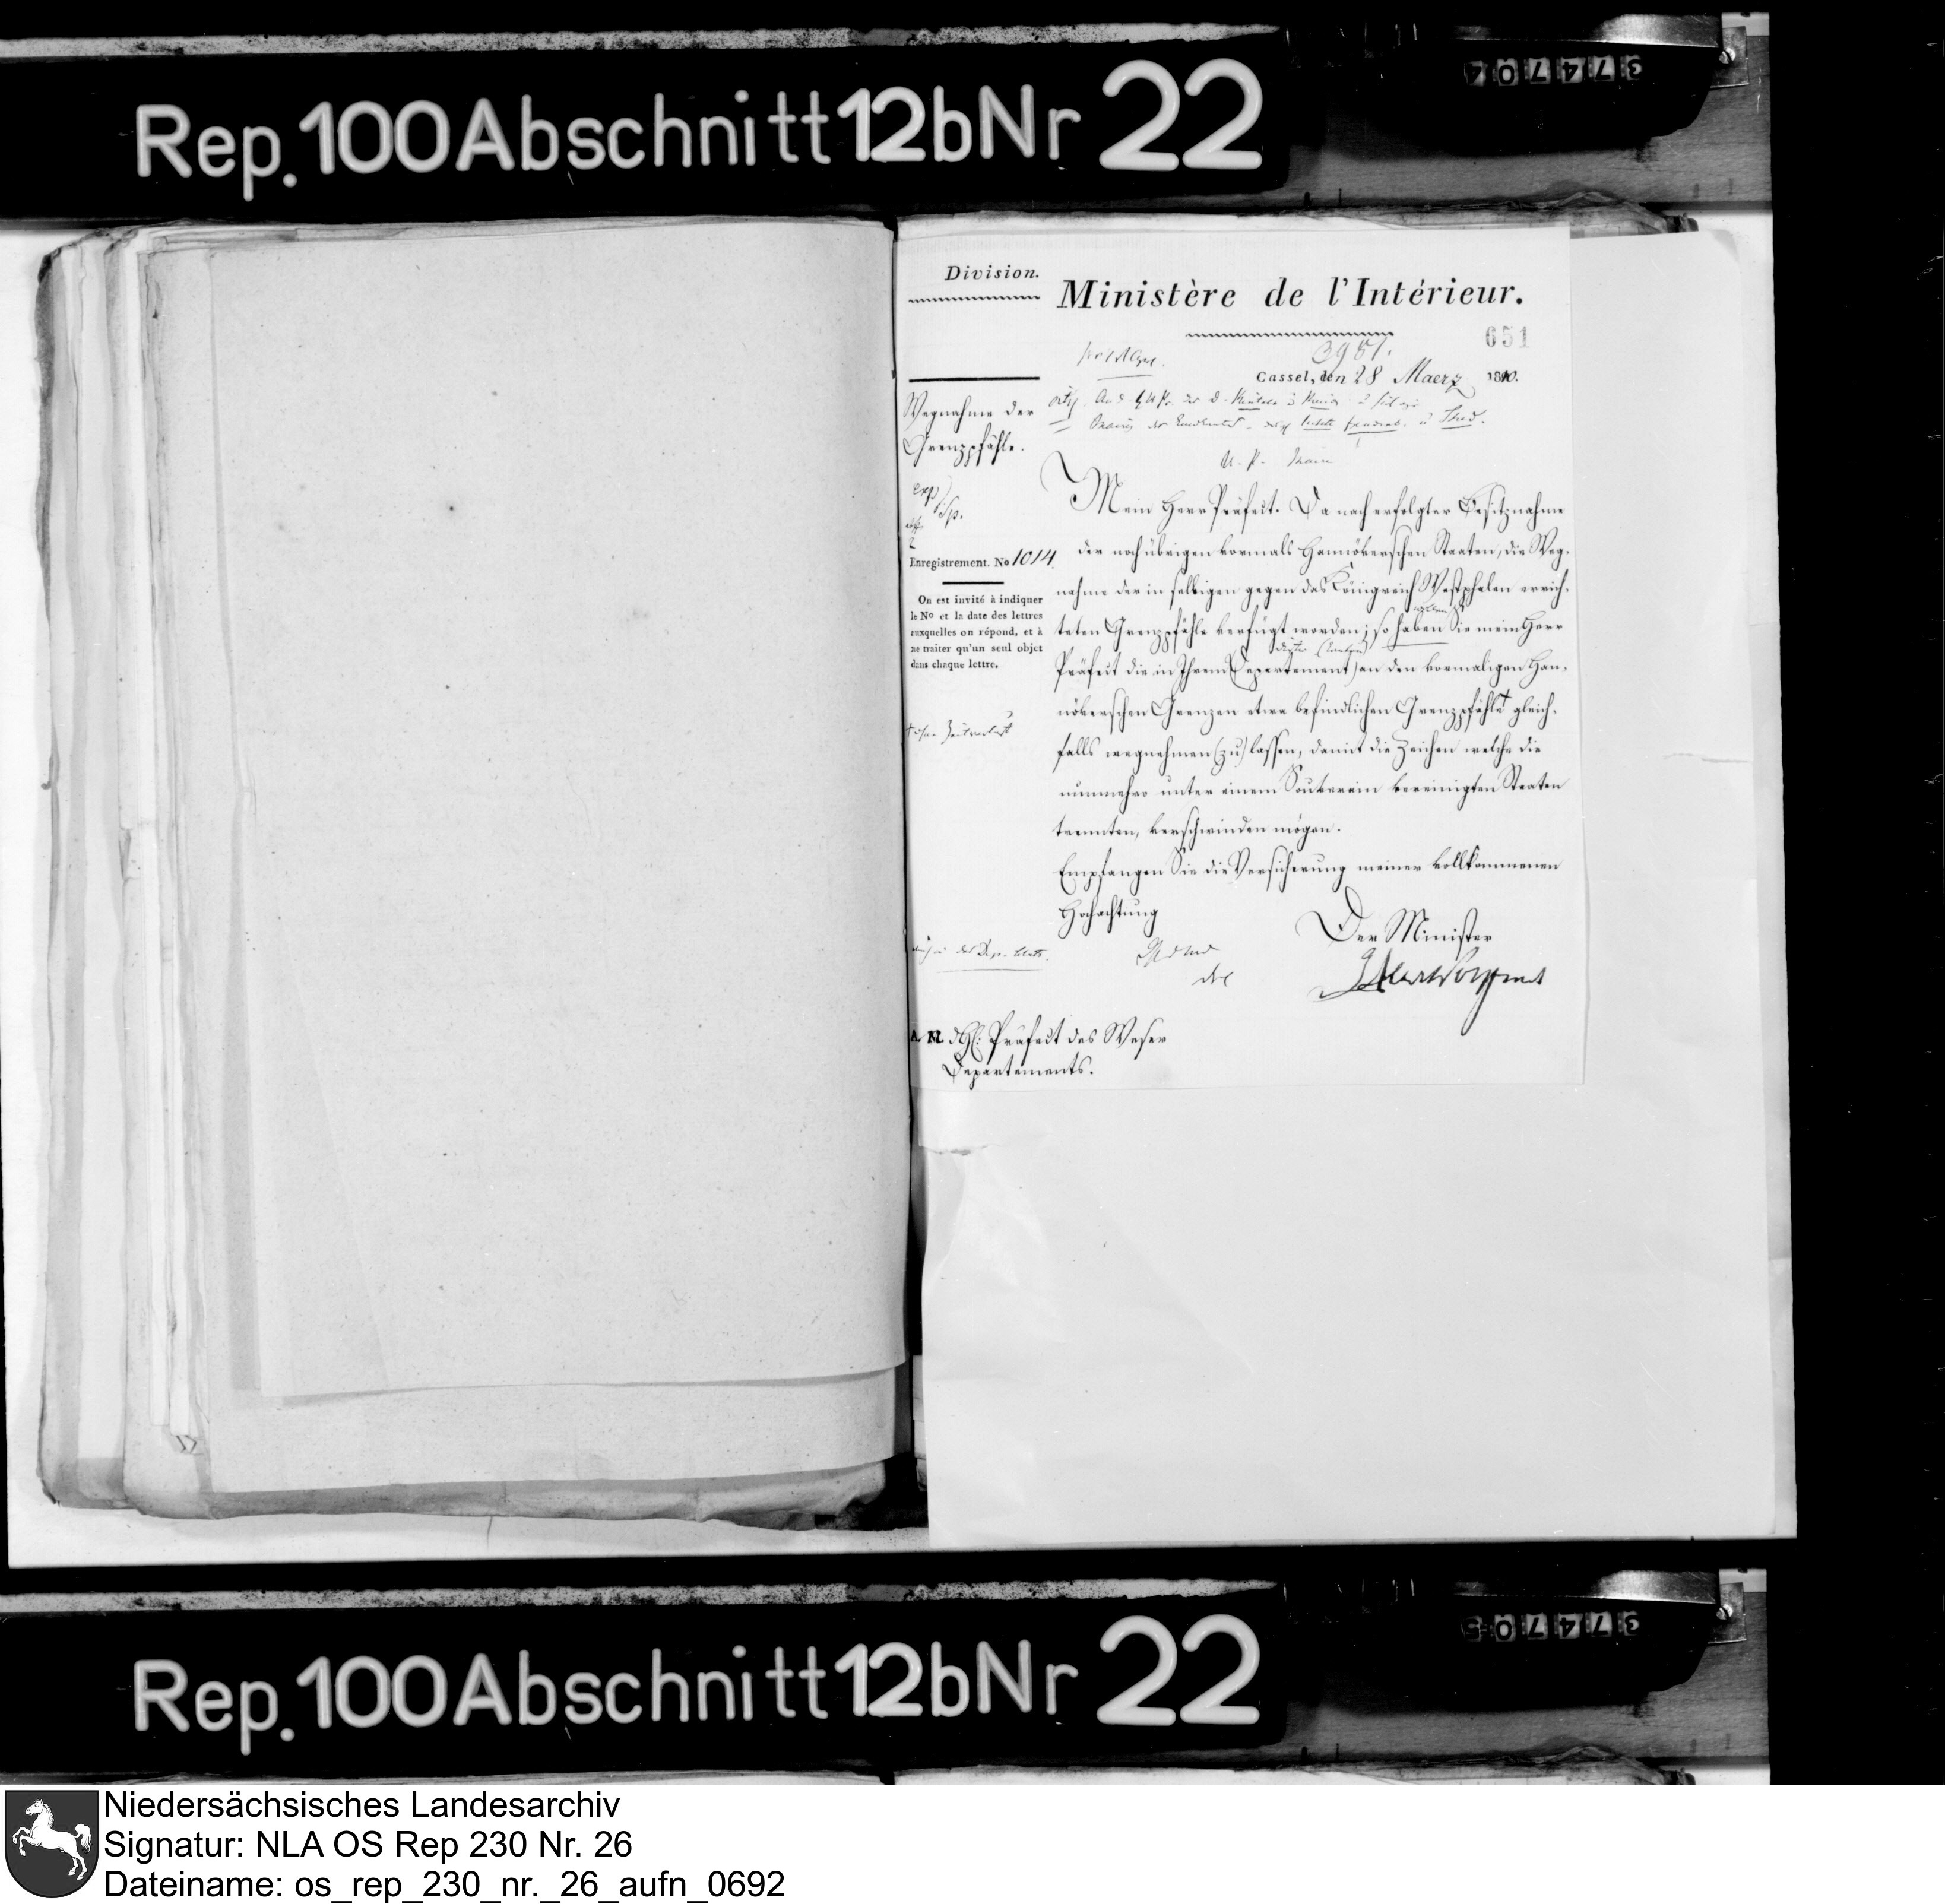 Rep. 100 Abschnitt 12b Nr 22
374704
Division.
Ministère de l'Intérieur.
651
3981.
Cassel, den 28 Maerz 1810.
Wegnahme der
Grenzpfähle.
U. P. Maire
exp
Enregistrement. No 1014.
On est invité à indiquer
le No et la date des lettres
auxquelles on répond, et à
ne traiter qu'un seul objet
dans chaque lettre.
Mein Herr Präfect. Da nach erfolgter Besitznahme
der noch übrigen vormals Hannöverschen Staaten, die Weg-
nahme der in selbigen gegen das Königreich Westphalen errich-
teten Grenzpfähle verfügt worden; so haben Sie mein Herr
Präfect die in Ihrem Departement an den vormaligen Han-
növerschen Grenzen etwa befindlichen Grenzpfähle gleich-
falls wegnehmen (zu) lassen, damit die Zeichen welche die
nunmehro unter einem Souverain vereinigten Staaten
trennten, verschwinden mögen.
Empfangen Sie die Versicherung meiner vollkommenen
Hochachtung
Der Minister
† ohne Zeitverlust
A. M. d H: Präfect des Weser
Departements.
Rep. 100 Abschnitt 12b Nr 22
374705
Niedersächsisches Landesarchiv
Signatur: NLA OS Rep 230 Nr. 26
Dateiname: os_rep_230_nr._26_aufn_0692